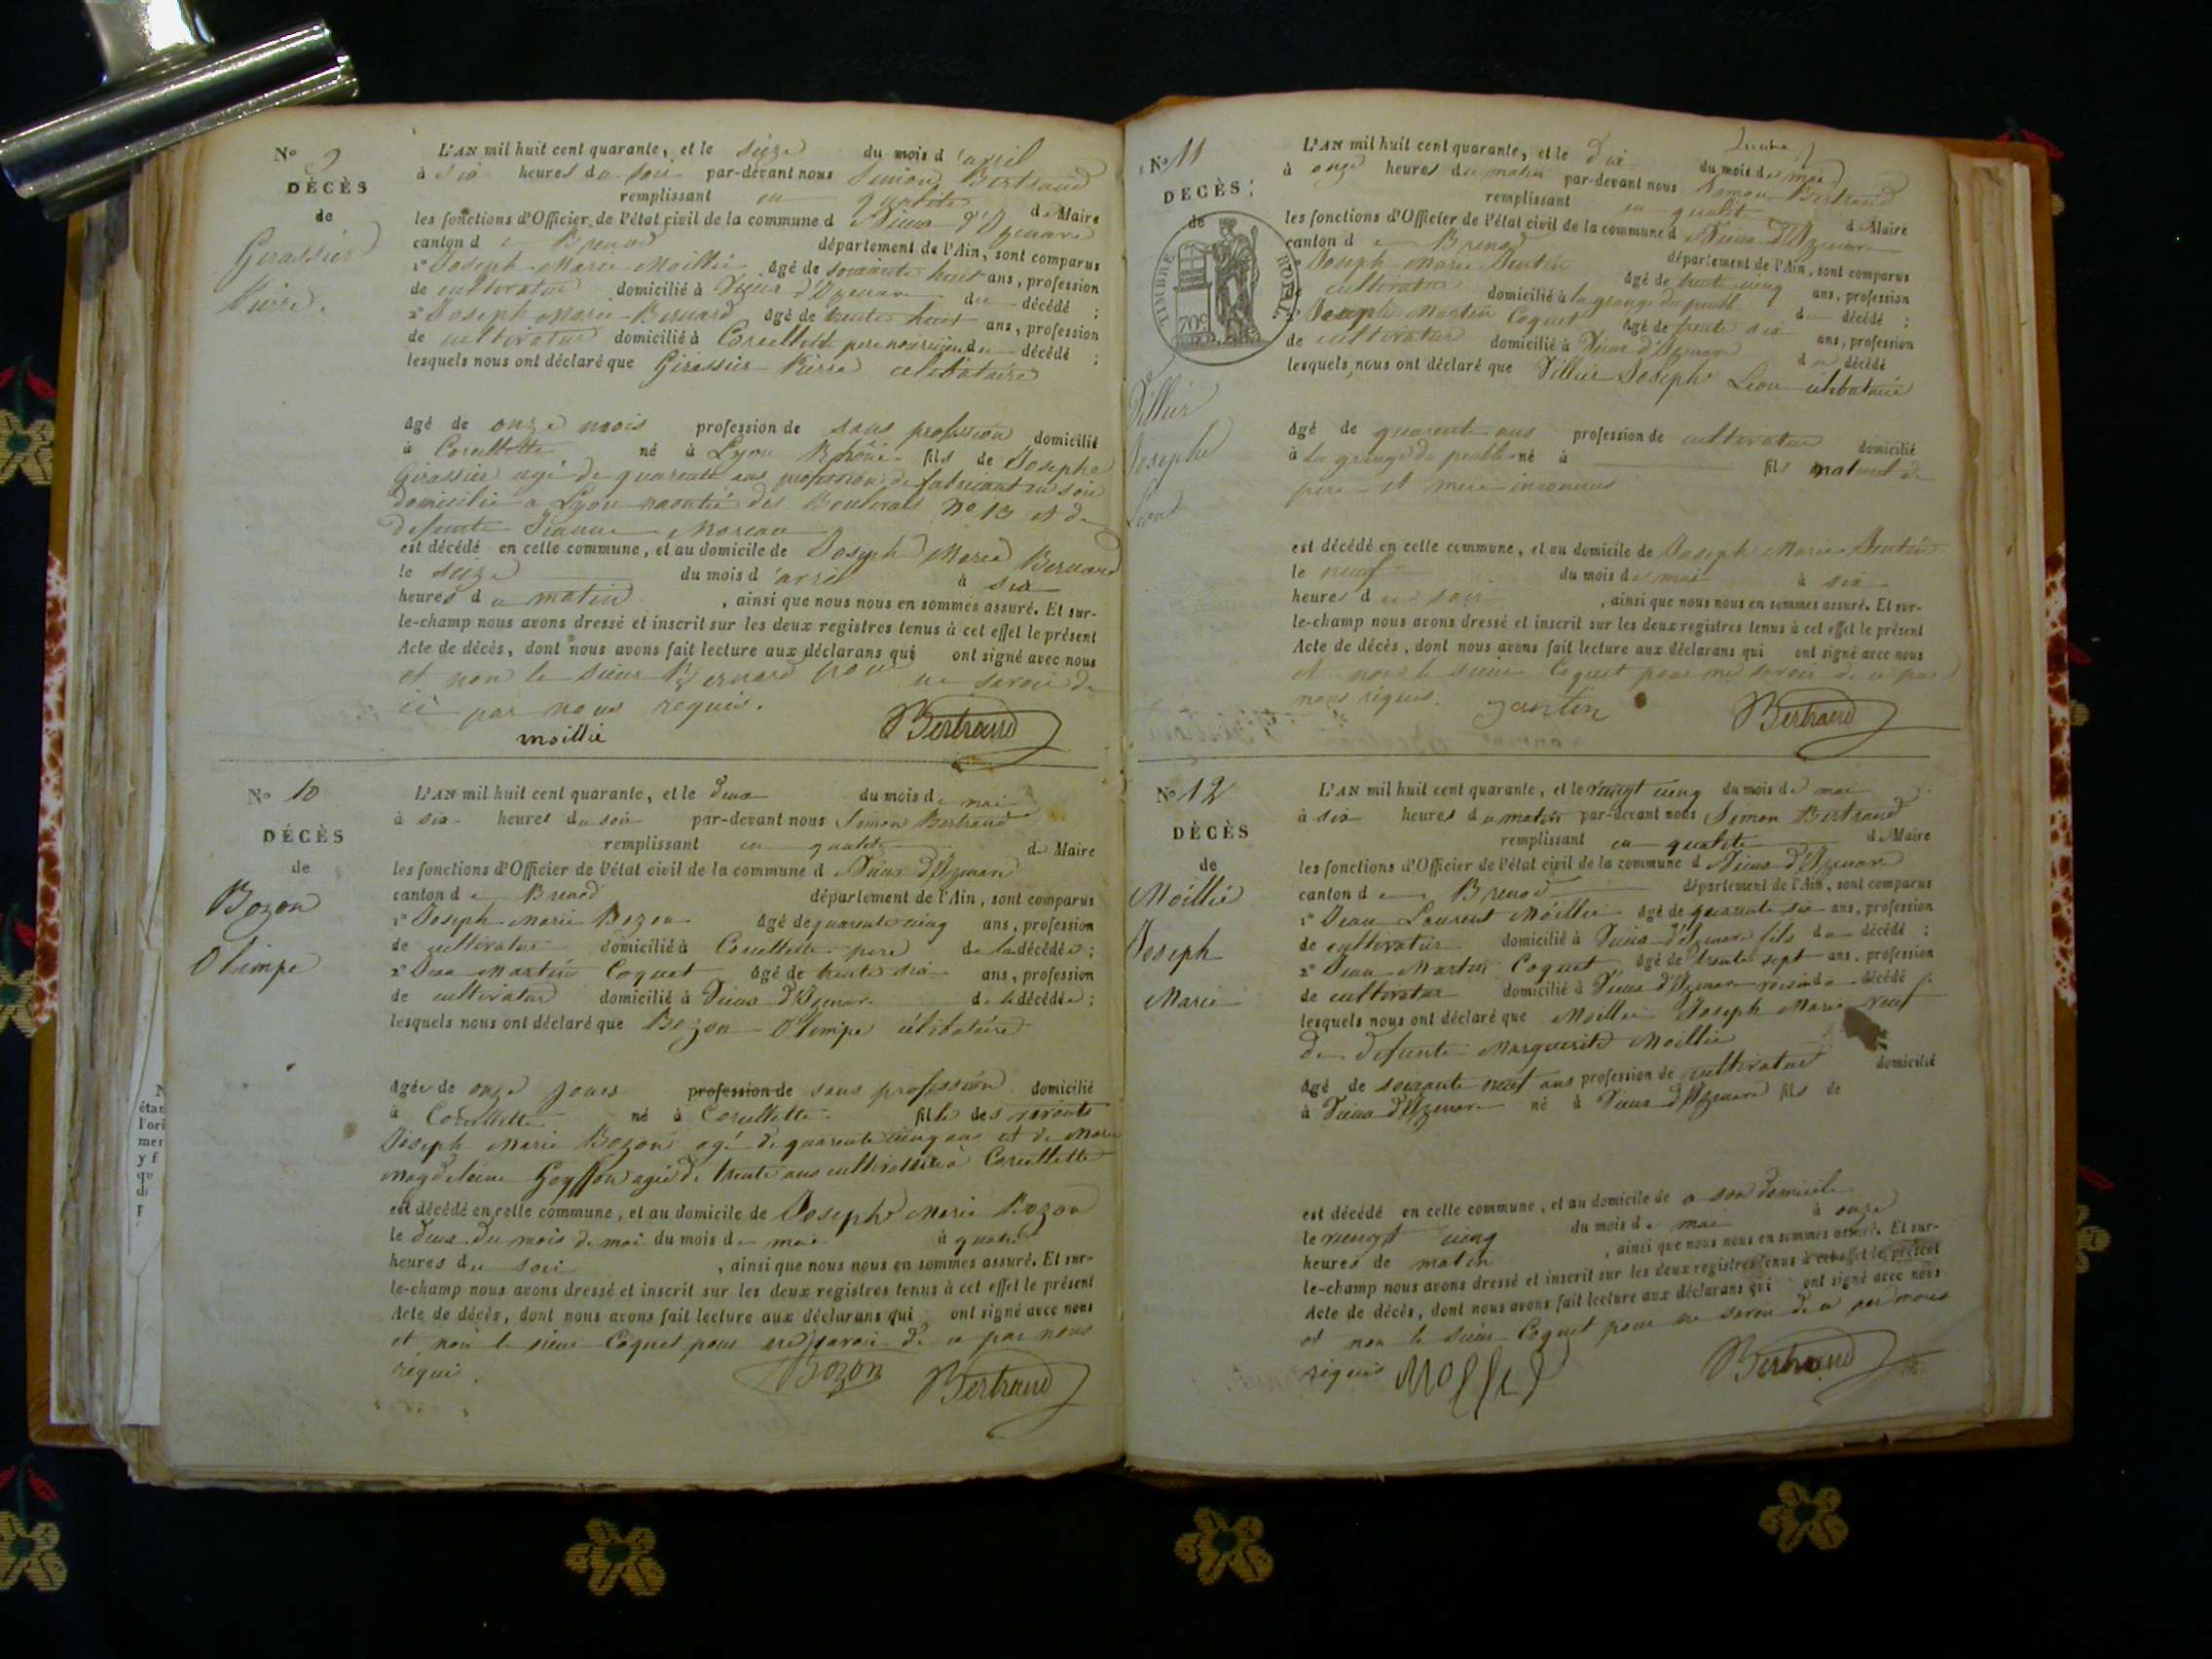 No 9
DÉCÈS
de
Girassier
Pierre.
L'AN mil huit cent quarante, et le seize du mois d'avril
à six heures du soir par-devant nous Simon Bertrand
remplissant en qualité de Maire
les fonctions d'Officier de l'état civil de la commune d Vieux d'Izenave
canton de Brenod département de l'Ain, sont comparus
1° Joseph Marie Moillié âgé de soixante huit ans, profession
de cultivateur domicilié à Vieux d'Izenave du décédé ;
2° Joseph Marie Bernard âgé de trente huit ans, profession
de cultivateur domicilié à Corcellette pere nourricier du décédé ;
lesquels nous ont déclaré que Girassier Pierre celibataire
âgé de onze mois profession de sans profession domicilié
à Corcellette né à Lyon Rhône fils de Joseph
Girassier agé de quarante ans profession de fabricant en soie
domicilié a Lyon montée des Boulevals No 13 et de
defunte Jeanne Moreau
est décédé en cette commune, et au domicile de Joseph Marie Bernard
le seize du mois d'avril à six
heures du matin , ainsi que nous nous en sommes assuré. Et sur-
le-champ nous avons dressé et inscrit sur les deux registres tenus à cet effet le présent
Acte de décès, dont nous avons fait lecture aux déclarans qui ont signé avec nous
et non le sieur Bernard pour ne savoir de
ce par nous requis.
moillié Bertrand
No 10
DÉCÈS
de
Bozon
Olimpe
L'AN mil huit cent quarante, et le deux du mois de mai
à six heures du soir par-devant nous Simon Bertrand
remplissant en qualité de Maire
les fonctions d'Officier de l'état civil de la commune d Vieux d'Izenave
canton de Brenod département de l'Ain, sont comparus
1° Joseph Marie Bozon âgé de quarante cinq ans, profession
de cultivateur domicilié à Corcellette pere de la décédée ;
2° Jean Martin Coquet âgé de trente six ans, profession
de cultivateur domicilié à Vieux d'Izenave de la décédée ;
lesquels nous ont déclaré que Bozon Olimpe célibataire
âgée de onze jours profession de sans profession domicilié
à Corcellette né à Corcellette fille des vivants
Joseph Marie Bozon agé de quarante cinq ans et de Marie
Magdelaine Goyffon agée de trente ans cultivateurs à Corcellette
est décédé en cette commune, et au domicile de Joseph Marie Bozon
le deux du mois de mai du mois de mai à quatre
heures du soir , ainsi que nous nous en sommes assuré. Et sur-
le-champ nous avons dressé et inscrit sur les deux registres tenus à cet effet le présent
Acte de décès, dont nous avons fait lecture aux déclarans qui ont signé avec nous
et non le sieur Coquet pour ne savoir de ce par nous
requis.
Bozon Bertrand
No 11
DÉCÈS
de
TIMBRE ROYAL
70c
Villier
Joseph
Léon
L'AN mil huit cent quarante, et le dix du mois de mai
à onze heures du matin par-devant nous Simon Bertrand
remplissant en qualité de Maire
les fonctions d'Officier de l'état civil de la commune d Vieux d'Izenave
canton de Brenod département de l'Ain, sont comparus
1° Joseph Marie Jantin âgé de trente cinq ans, profession
de cultivateur domicilié à la grange du peuble du décédé ;
2° Joseph Martin Coquet âgé de trente six ans, profession
de cultivateur domicilié à Vieux d'Izenave du décédé
lesquels nous ont déclaré que Villier Joseph Léon célibataire
âgé de quarante ans profession de cultivateur domicilié
à la grange du peuble né à fils naturel de
pere et mere inconnus
est décédé en cette commune, et au domicile de Joseph Marie Jantin
le neuf du mois de mai à six
heures du soir , ainsi que nous nous en sommes assuré. Et sur-
le-champ nous avons dressé et inscrit sur les deux registres tenus à cet effet le présent
Acte de décès, dont nous avons fait lecture aux déclarans qui ont signé avec nous
et non le sieur Coquet pour ne savoir de ce par
nous requis. Jantin Bertrand
No 12
DÉCÈS
de
Moillié
Joseph
Marie
L'AN mil huit cent quarante, et le vingt cinq du mois de mai
à six heures du matin par-devant nous Simon Bertrand
remplissant en qualité de Maire
les fonctions d'Officier de l'état civil de la commune d Vieux d'Izenave
canton de Brenod département de l'Ain, sont comparus
1° Jean Laurent Moillié âgé de quarante six ans, profession
de cultivateur domicilié à Vieux d'Izenave fils du décédé ;
2° Jean Martin Coquet âgé de trente sept ans, profession
de cultivateur domicilié à Vieux d'Izenave voisin du décédé ;
lesquels nous ont déclaré que Moillié Joseph Marie veuf
de defunte Marguerite Moillié
âgé de soixante neuf ans profession de cultivateur domicilié
à Vieux d'Izenave né à Vieux d'Izenave fils de
est décédé en cette commune, et au domicile de a son domicile
le vingt cinq du mois de mai à onze
heures de matin , ainsi que nous nous en sommes assuré. Et sur-
le-champ nous avons dressé et inscrit sur les deux registres tenus à cet effet le présent
Acte de décès, dont nous avons fait lecture aux déclarans qui ont signé avec nous
et non le sieur Coquet pour ne savoir de ce par nous
requis Bertrand